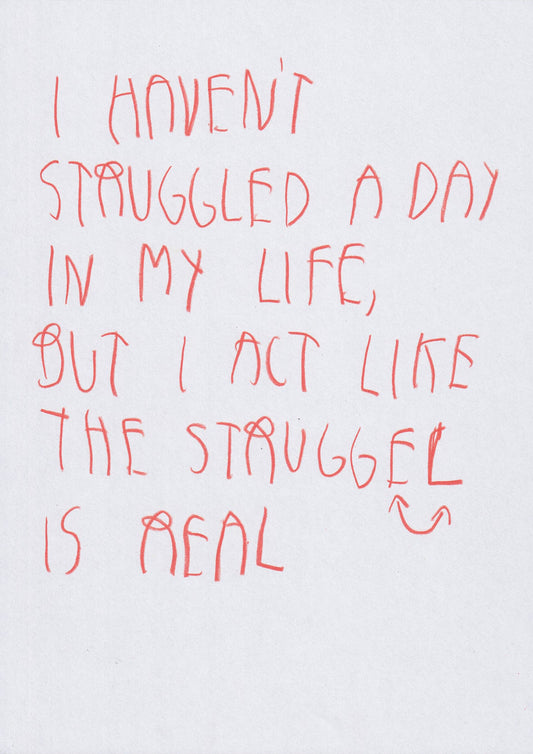 I HAVEN'T
STRUGGLED A DAY
IN MY LIFE,
BUT I ACT LIKE
THE STRUGGEL
IS REAL